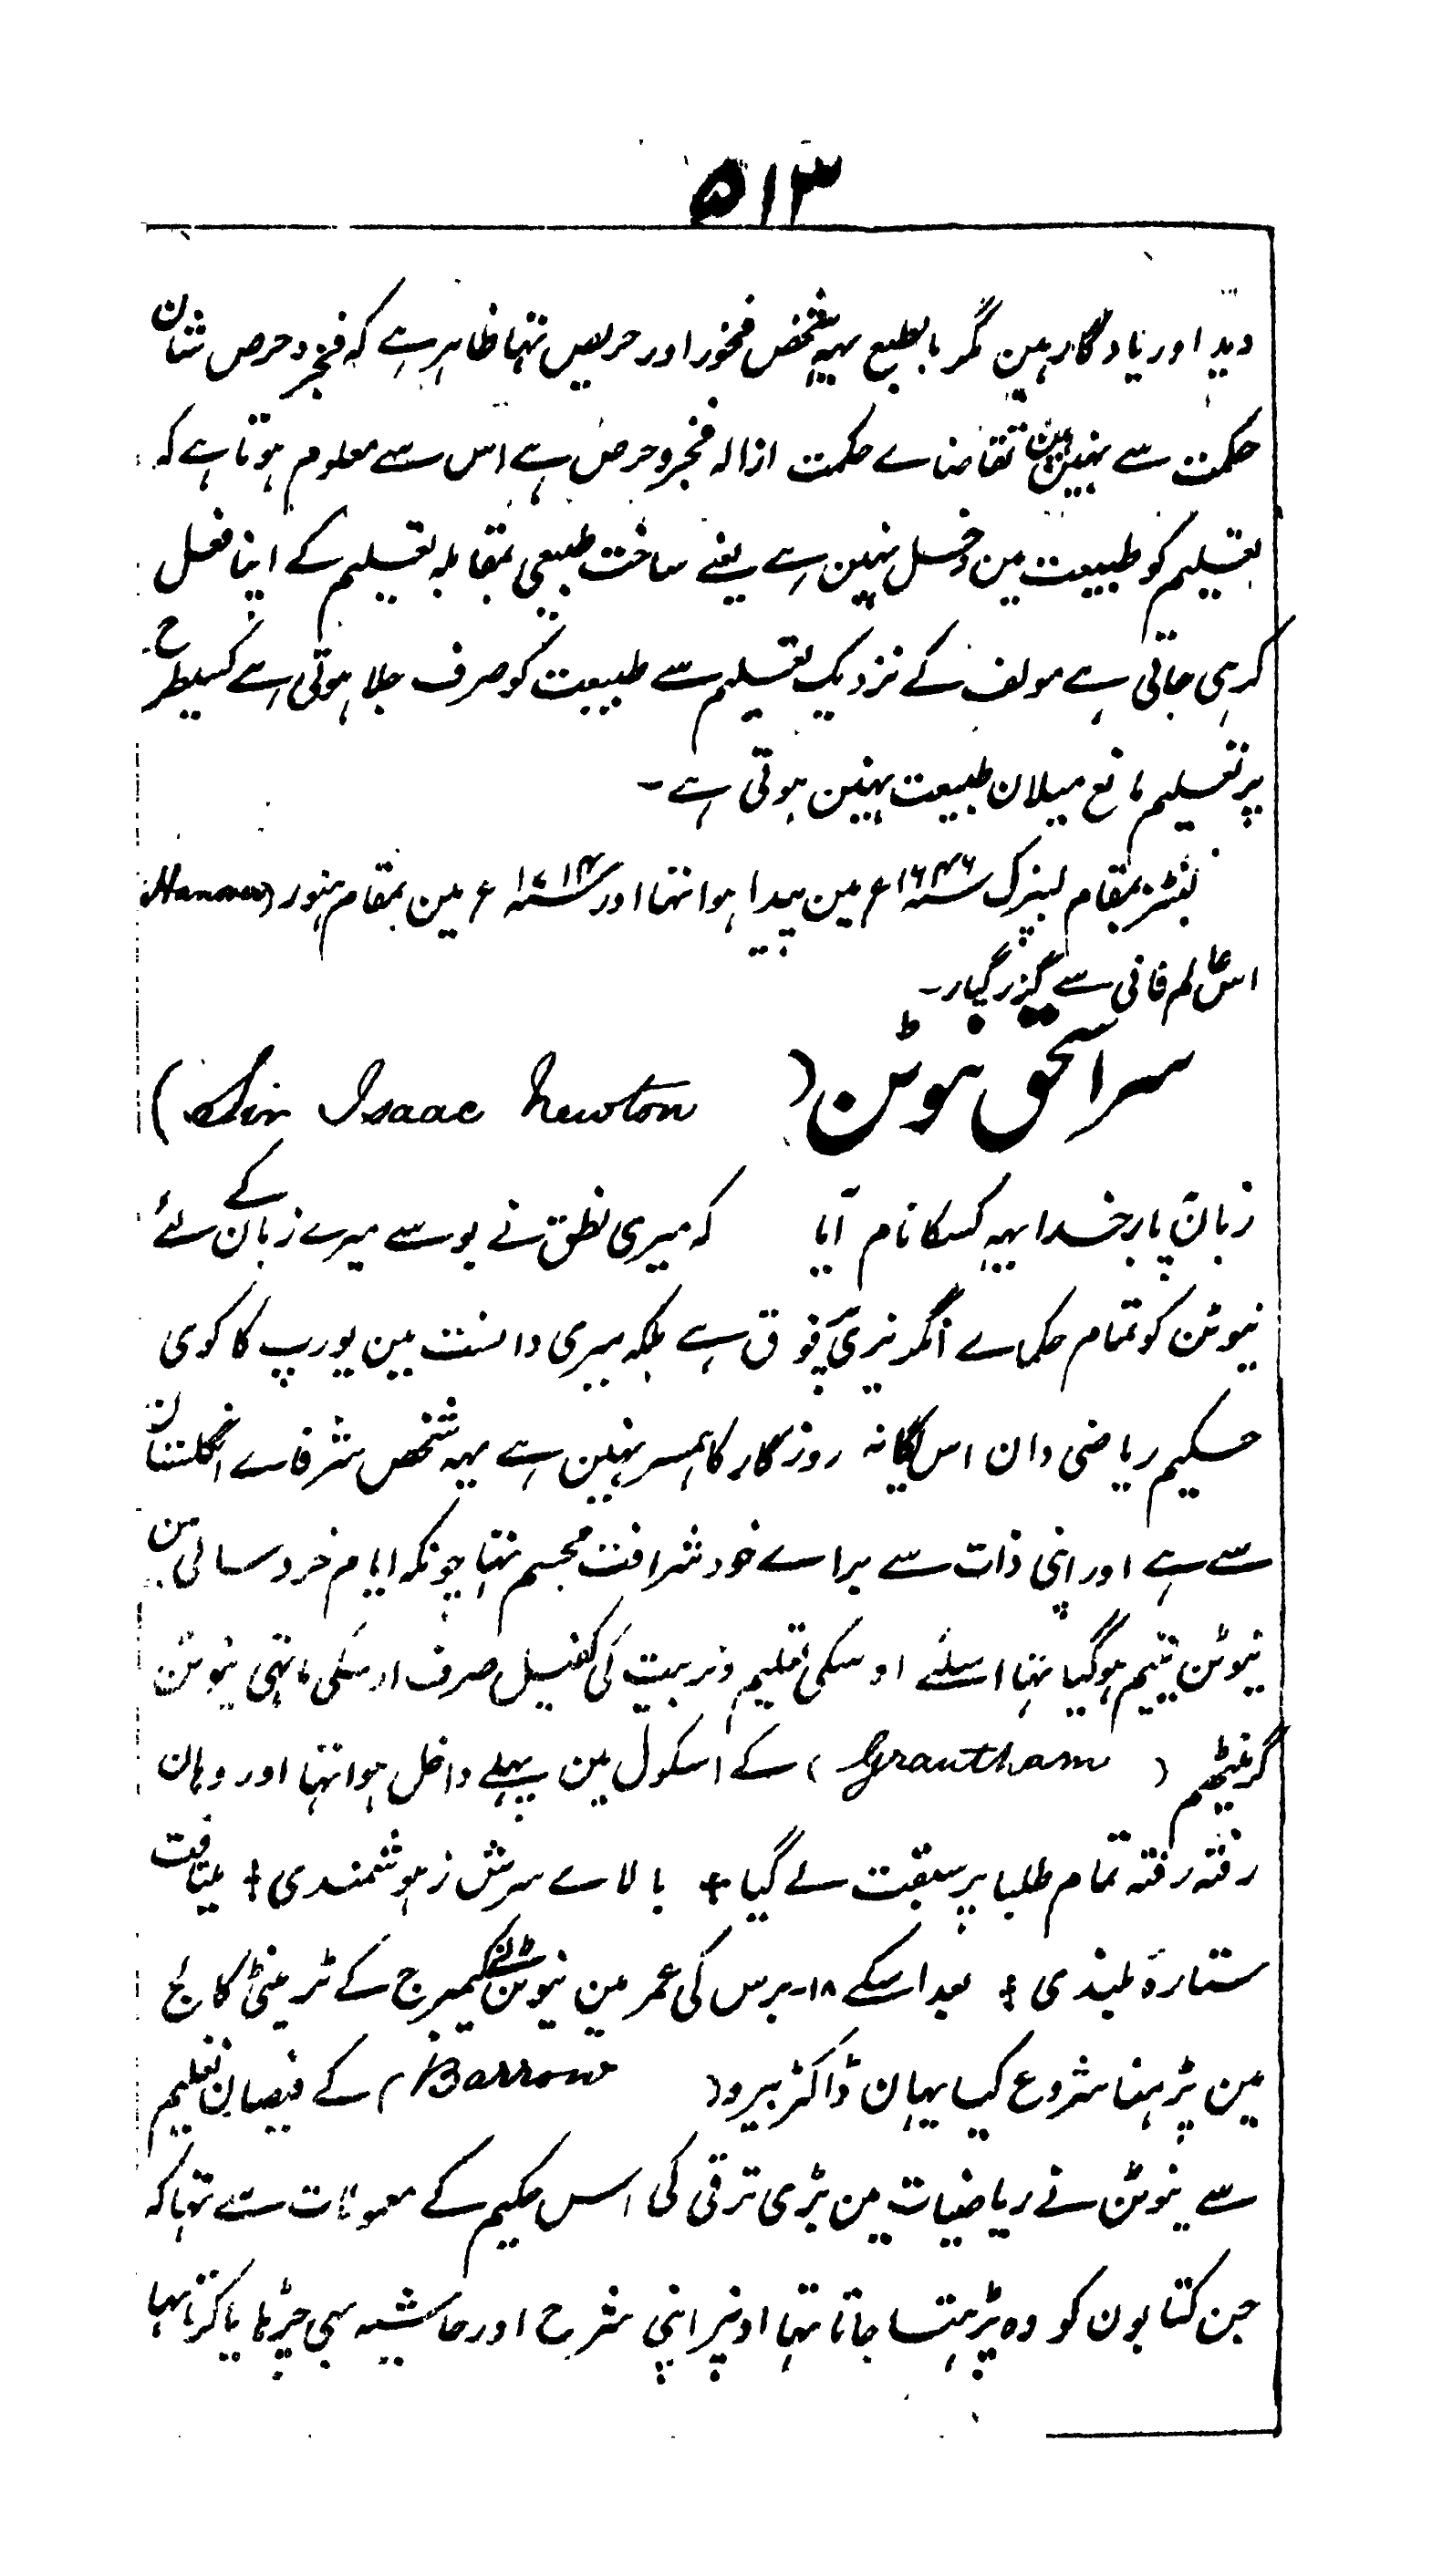 ۵۱۳
دید اور یادگار ہین مگر بالطبع یہہ شخص فخور اور حریص تہا ظاہر ہے کہ فخر و حرص شان
حکمت سے نہین ہین تقاضاے حکمت ازالہ فخر و حرص ہے اس سے معلوم ہوتا ہے کہ
تعلیم کو طبیعت مین دخل نہین ہے یعنے ساخت طبیعی بمقابلہ تعلیم کے اپنا فعل
کر ہی جاتی ہے مولف کے نزدیک تعلیم سے طبیعت کو صرف جلا ہوتی ہے کسیطرح
پر تعلیم مانع میلان طبیعت نہین ہوتی ہے ۔
لبنٹز بمقام لیپزک سنہ ۱۶۴۶ ء مین پیدا ہوا تہا اور سنہ ۱۷۱۴ ء مین بمقام ہنور (Hanover)
اس عالم فانی سے گزر گیا ۔
سر اسحٰق نیوٹن (Sir Isaac Newton)
زبان پہ بار خدا یہہ کسکا نام آیا کہ میری نطق نے بوسے میرے زبان کے لئے
نیوٹن کو تمام حکماے انگریزی پر فوق ہے بلکہ میری دانست مین یورپ کا کوی
حکیم ریاضی دان اس یگانہ روزگار کا ہمسر نہین ہے یہہ شخص شرفاے انگلستان
سے ہے اور اپنی ذات سے براے خود شرافت مجسم تہا چونکہ ایام خرد سالی مین
نیوٹن یتیم ہوگیا تہا اسلئے اوسکی تعلیم و تربیت کی کفیل صرف اوسکی ما تہی نیوٹن
گرینٹھم (Grantham) کے اسکول مین پہلے داخل ہوا تہا اور وہان
رفتہ رفتہ تمام طلبا پر سبقت لے گیا + بالاے سرش ز ہوشمندی + میتافت
ستارۂ بلندی + بعد اسکے ۱۸۔ برس کی عمر مین نیوٹن نے کیمبرج کے ٹرینٹی کالج
مین پڑہنا شروع کیا یہان ڈاکٹر بیرو (Barrow) کے فیضان تعلیم
سے نیوٹن نے ریاضیات مین بڑی ترقی کی اس حکیم کے معمولات سے تہا کہ
جن کتابون کو وہ پڑہتا جاتا تہا اونپر اپنی شرح اور حاشیہ بہی چڑہایا کرتا تہا